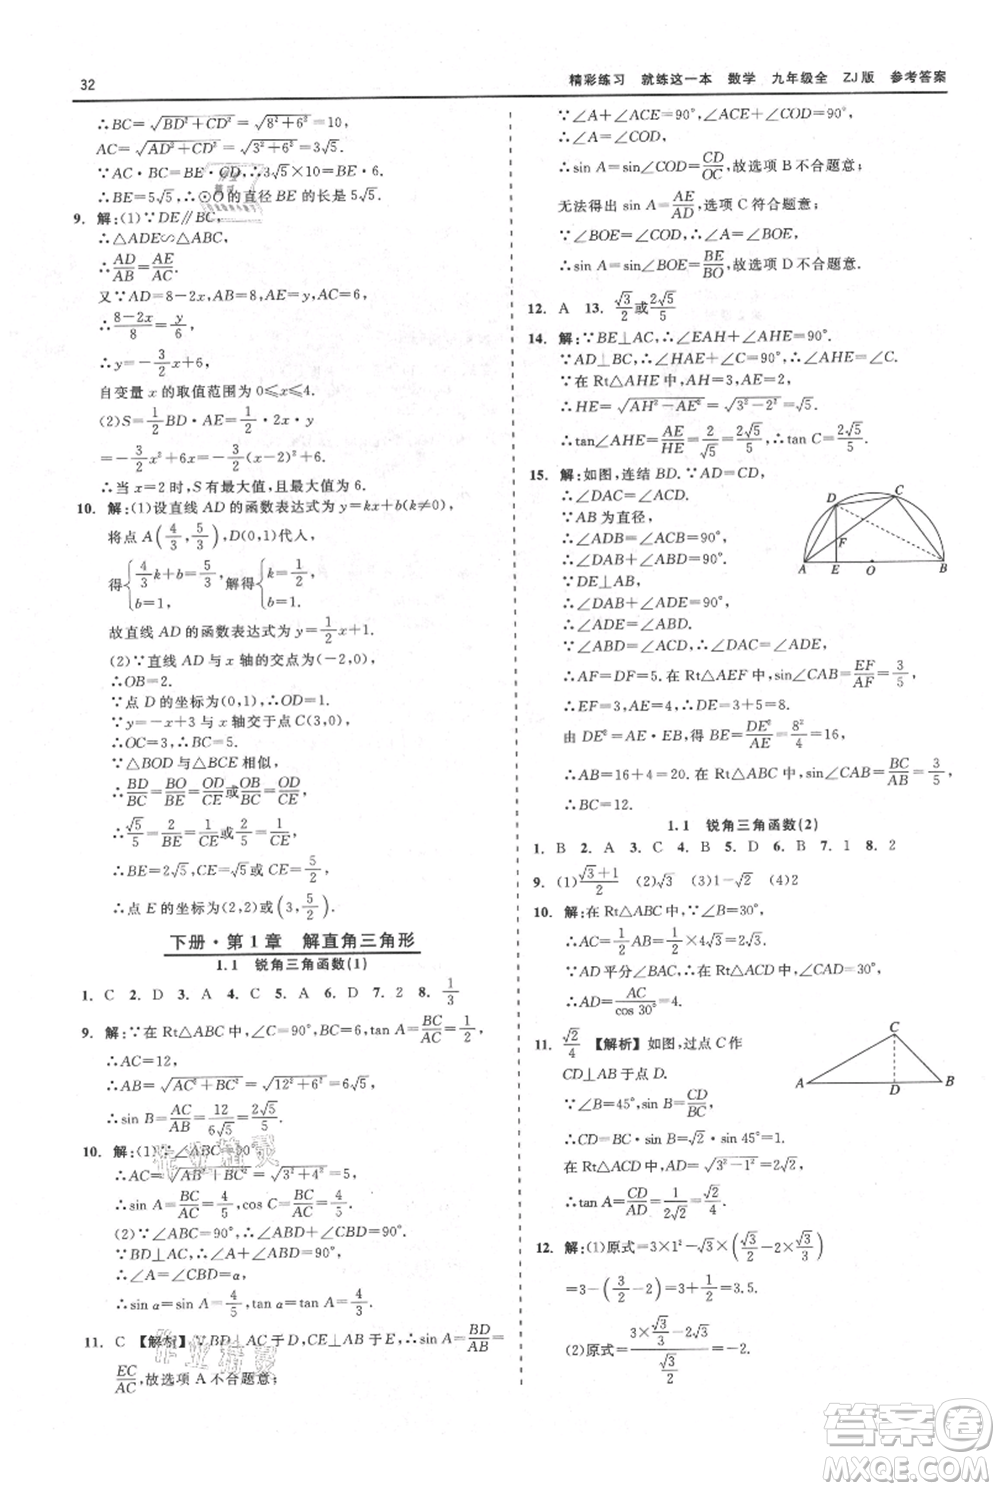 32
精彩练习 就练这一本 数学 九年级全 ZJ版 参考答案
∴BC=√(BD²+CD²)=√(8²+6²)=10,
AC=√(AD²+CD²)=√(3²+6²)=3√5.
∵AC·BC=BE·CD,∴3√5×10=BE·6.
∴BE=5√5,∴⊙O的直径BE的长是5√5.
9. 解:(1)∵DE∥BC,
∴△ADE∽△ABC,
∴AD/AB=AE/AC.
又∵AD=8-2x,AB=8,AE=y,AC=6,
∴(8-2x)/8=y/6,
∴y=-3/2x+6;
自变量x的取值范围为0⩽x⩽4.
(2)S=1/2BD·AE=1/2·2x·y
=-3/2x²+6x=-3/2(x-2)²+6,
∴当x=2时,S有最大值,且最大值为6.
10. 解:(1)设直线AD的函数表达式为y=kx+b(k≠0),
将点A(4/3,5/3),D(0,1)代入,
得{4/3k+b=5/3, b=1, 解得{k=1/2, b=1.
故直线AD的函数表达式为y=1/2x+1.
(2)∵直线AD与x轴的交点为(-2,0),
∴OB=2.
∵点D的坐标为(0,1),∴OD=1.
∵y=-x+3与x轴交于点C(3,0),
∴OC=3,∴BC=5.
∵△BOD与△BCE相似,
∴BD/BE=BO/BC=OD/CE或BD/BC=BO/BE=OD/CE,
∴√5/BE=2/5=1/CE或√5/5=2/BE=1/CE,
∴BE=2√5,CE=√5或CE=5/2,
∴点E的坐标为(2,2)或(3,5/2).
下册·第1章 解直角三角形
1.1 锐角三角函数(1)
1. C 2. D 3. A 4. C 5. A 6. D 7. 2 8. 1/3
9. 解:∵在Rt△ABC中,∠C=90°,BC=6,tan A=BC/AC=1/2,
∴AC=12,
∴AB=√(AC²+BC²)=√(12²+6²)=6√5,
∴sin B=AC/AB=12/6√5=2√5/5.
10. 解:(1)∵∠ABC=90°,
∴AC=√(AB²+BC²)=√(3²+4²)=5,
∴sin A=BC/AC=4/5,cos C=BC/AC=4/5.
(2)∵∠ABC=90°,∴∠ABD+∠CBD=90°.
∵BD⊥AC,∴∠A+∠ABD=90°,
∴∠A=∠CBD=α,
∴sin α=sin A=4/5,tan α=tan A=4/3.
11. C 【解析】∵BD⊥AC于D,CE⊥AB于E,∴sin A=BD/AB=
EC/AC,故选项A不合题意;
∵∠A+∠ACE=90°,∠ACE+∠COD=90°,
∴∠A=∠COD,
∴sin A=sin∠COD=CD/OC,故选项B不合题意;
无法得出sin A=AE/AD,选项C符合题意;
∵∠BOE=∠COD,∴∠A=∠BOE,
∴sin A=sin∠BOE=BE/BO,故选项D不合题意.
12. A 13. √3/2或2√5/5
14. 解:∵BE⊥AC,∴∠EAH+∠AHE=90°.
∵AD⊥BC,∴∠EAH+∠C=90°,∴∠AHE=∠C.
∵在Rt△AHE中,AH=3,AE=2,
∴HE=√(AH²-AE²)=√(3²-2²)=√5,
∴tan∠AHE=AE/HE=2/√5=2√5/5,∴tan C=2√5/5.
15. 解:如图,连结BD.∵AD=CD,
∴∠DAC=∠ABD.
∵AB为直径,
∴∠ADB=∠ACB=90°,
∴∠DAB+∠ABD=90°.
∵DE⊥AB,
∴∠DAB+∠ADE=90°,
∴∠ADE=∠ABD.
∵∠ABD=∠ACD,∴∠DAC=∠ADE,
∴AF=DF=5.在Rt△AEF中,sin∠CAB=EF/AF=3/5,
∴EF=3,AE=4,∴DE=3+5=8.
由DE²=AE·EB,得EB=DE²/AE=8²/4=16,
∴AB=16+4=20.在Rt△ABC中,sin∠CAB=BC/AB=3/5,
∴BC=12.
D
C
F
A
E
O
B
1.1 锐角三角函数(2)
1. B 2. A 3. C 4. B 5. D 6. B 7. 1 8. 2
9. (1)(√3+1)/2 (2)√3 (3)1-√2 (4)2
10. 解:在Rt△ABC中,∵∠B=30°,
∴AC=1/2AB=1/2×4√3=2√3.
∵AD平分∠BAC,∴在Rt△ACD中,∠CAD=30°,
∴AD=AC/cos 30°=4.
11. √2/4 【解析】如图,过点C作
CD⊥AB于点D.
∵∠B=45°,sin B=CD/BC,
∴CD=BC·sin B=√2·sin 45°=1.
在Rt△ACD中,AD=√(3²-1²)=√8=2√2,
∴tan A=CD/AD=1/2√2=√2/4.
C
A
D
B
12. 解:(1)原式=3×1²-√3×(√3/2-2×√3/2)
=3-(3/2-2)... 
(2)原式=(3×√3/3)/(√3/2)=√3/(√3/2)=2.
答案卷
MXQE.COM